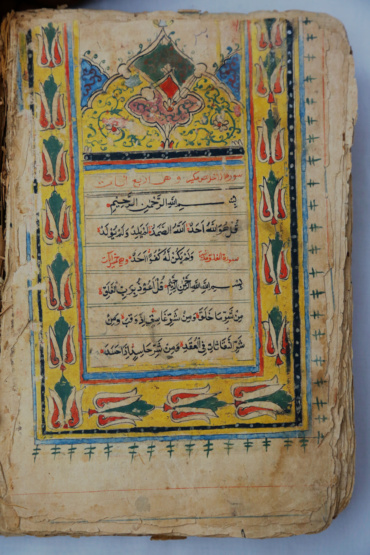 بِسْمِ اللهِ الرَّحْمٰنِ الرَّحِيمِ
قُلْ هُوَ اللهُ اَحَدٌ اَللهُ الصَّمَدُ لَمْ يَلِدْ وَلَمْ يُولَدْ
وَلَمْ يَكُنْ لَهُ كُفُوًا اَحَدٌ سورة الفلق
بِسْمِ اللهِ الرَّحْمٰنِ الرَّحِيمِ قُلْ اَعُوذُ بِرَبِّ الْفَلَقِ
مِنْ شَرِّ مَا خَلَقَ وَمِنْ شَرِّ غَاسِقٍ اِذَا وَقَبَ وَمِنْ
شَرِّ النَّفَّاثَاتِ فِي الْعُقَدِ وَمِنْ شَرِّ حَاسِدٍ اِذَا حَسَدَ